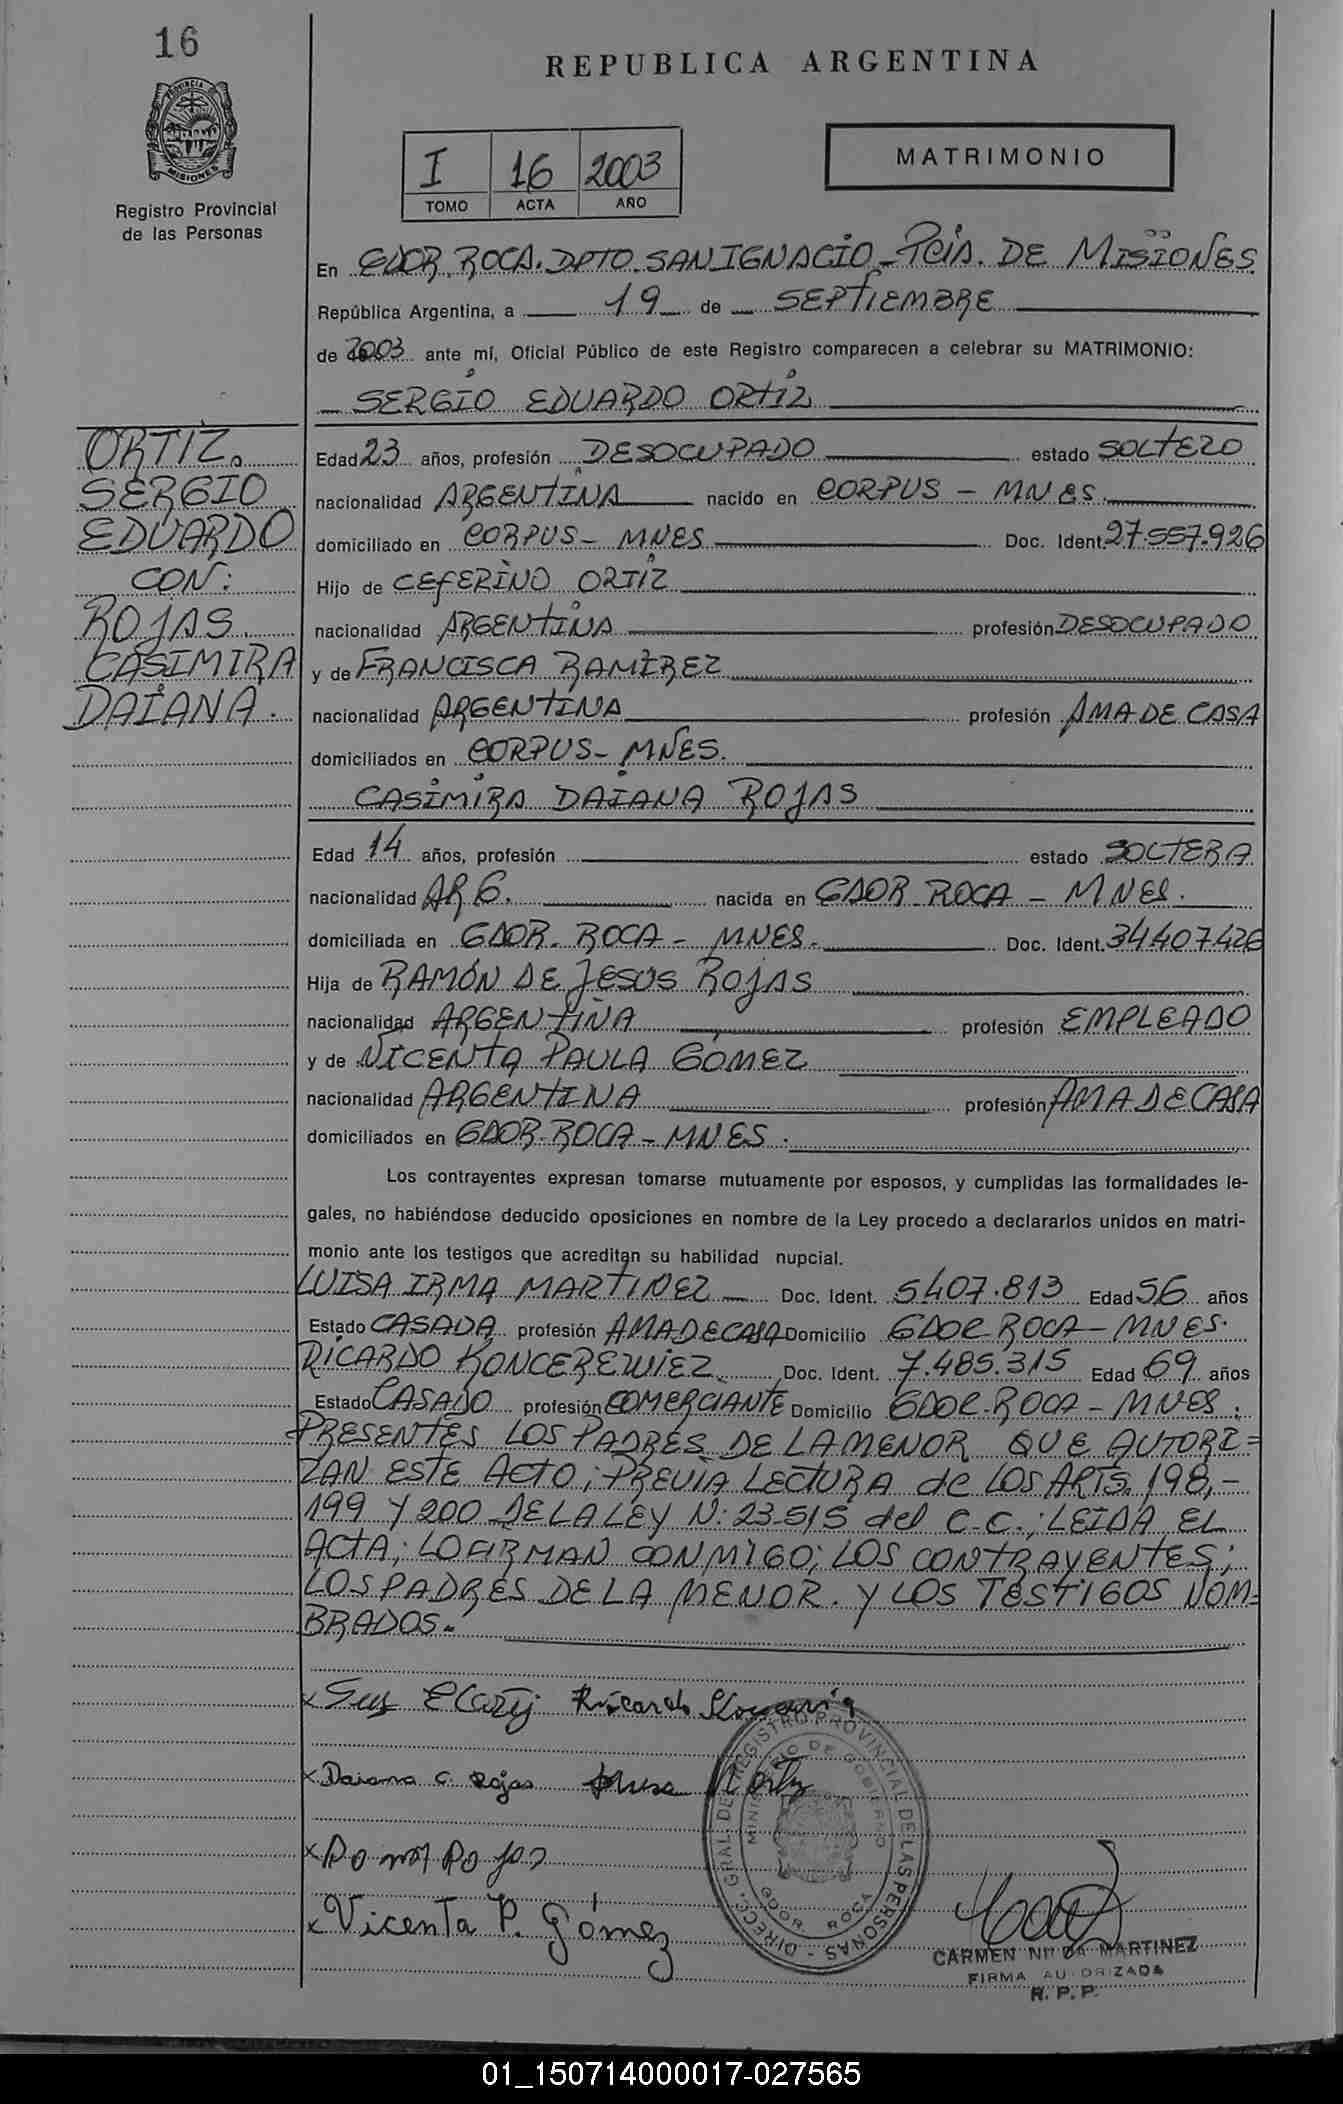 16
REPUBLICA ARGENTINA
PROVINCIA DE
MISIONES
Registro Provincial
de las Personas
I 16 2003
TOMO ACTA AÑO
MATRIMONIO
En GDOR. ROCA. DPTO. SAN IGNACIO - PCIA. DE MISIONES
República Argentina, a 19 de SEPTIEMBRE
de 2003 ante mí, Oficial Público de este Registro comparecen a celebrar su MATRIMONIO:
SERGIO EDUARDO ORTIZ
ORTIZ.
SERGIO
EDUARDO
CON:
ROJAS
CASIMIRA
DAIANA.
Edad 23 años, profesión DESOCUPADO estado SOLTERO
nacionalidad ARGENTINA nacido en CORPUS - MNES.
domiciliado en CORPUS - MNES Doc. Ident. 27.557.926
Hijo de CEFERINO ORTIZ
nacionalidad ARGENTINA profesión DESOCUPADO
y de FRANCISCA RAMIREZ
nacionalidad ARGENTINA profesión AMA DE CASA
domiciliados en CORPUS - MNES.
CASIMIRA DAIANA ROJAS
Edad 14 años, profesión estado SOLTERA
nacionalidad ARG. nacida en GDOR ROCA - MNES.
domiciliada en GDOR. ROCA - MNES. Doc. Ident. 34407426
Hija de RAMÓN DE JESUS ROJAS
nacionalidad ARGENTINA profesión EMPLEADO
y de VICENTA PAULA GÓMEZ
nacionalidad ARGENTINA profesión AMA DE CASA
domiciliados en GDOR. ROCA - MNES.
Los contrayentes expresan tomarse mutuamente por esposos, y cumplidas las formalidades le-
gales, no habiéndose deducido oposiciones en nombre de la Ley procedo a declararlos unidos en matri-
monio ante los testigos que acreditan su habilidad nupcial.
LUISA IRMA MARTINEZ Doc. Ident. 5407.813 Edad 56 años
Estado CASADA profesión AMA DE CASA Domicilio GDOR ROCA - MNES.
RICARDO KONCEREWIEZ Doc. Ident. 7.485.315 Edad 69 años
Estado CASADO profesión COMERCIANTE Domicilio GDOR. ROCA - MNES.
PRESENTES LOS PADRES DE LA MENOR QUE AUTORI=
ZAN ESTE ACTO; PREVIA LECTURA de LOS ARTS. 198,-
199 Y 200 DE LA LEY N: 23.515 del C.C.; LEIDA EL
ACTA; LO FIRMAN CONMIGO; LOS CONTRAYENTES;
LOS PADRES DE LA MENOR. Y LOS TESTIGOS NOM=
BRADOS.-
x Ricardo
x Daiana C. Rojas
x
x Vicenta P. Gómez
DIRECC. GRAL DEL REGISTRO PROVINCIAL DE LAS PERSONAS -
MINISTERIO DE GOBIERNO
GDOR. ROCA
CARMEN NILDA MARTINEZ
FIRMA AUTORIZADA
R. P. P.
01_150714000017-027565